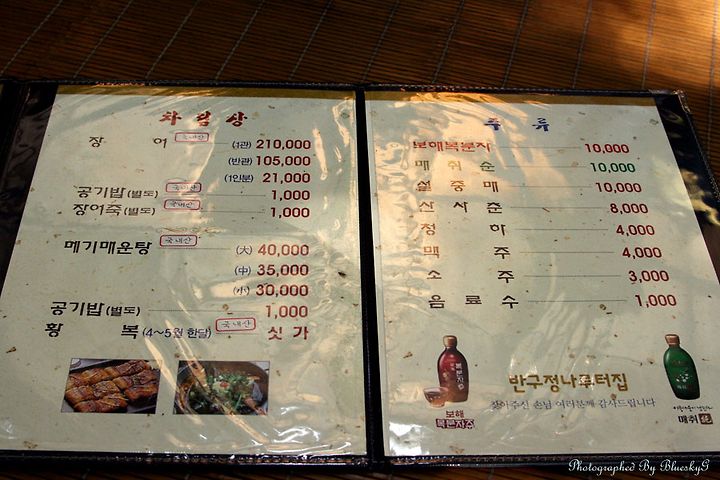 차림상
장 어 국내산 (1관) 210,000
(반관) 105,000
(1인분) 21,000
공기밥(별도) 국내산 1,000
장어죽(별도) 국내산 1,000
메기매운탕 국내산 (大) 40,000
(中) 35,000
(小) 30,000
공기밥(별도) 1,000
황 복 (4~5월 한달) 국내산 싯가
주류
보해복분자 10,000
매취순 10,000
설중매 10,000
산사춘 8,000
청하 4,000
맥주 4,000
소주 3,000
음료수 1,000
반구정나루터집
찾아주신 손님 여러분께 감사드립니다
보해
복분자주
매취純
Photographed By BlueskyG